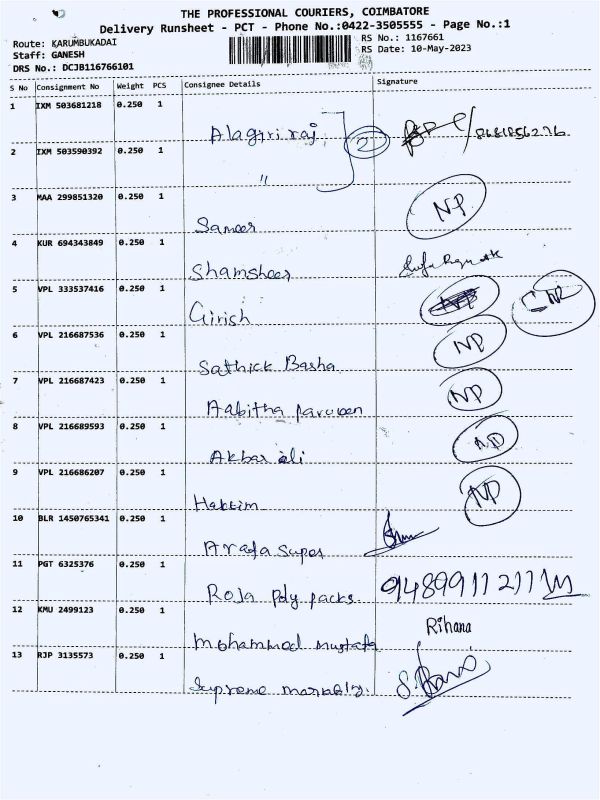 THE PROFESSIONAL COURIERS, COIMBATORE
Delivery Runsheet - PCT - Phone No.:0422-3505555 - Page No.:1
Route: KARUMBUKADAI
RS No.: 1167661
Staff: GANESH
RS Date: 10-May-2023
DRS No.: DCJB116766101
S No Consignment No Weight PCS Consignee Details Signature
1 IXM 503681218 0.250 1
Alagiri raj 2 8681856276
2 IXM 503590392 0.250 1
"
3 MAA 299851320 0.250 1
Sameer NP
4 KUR 694343849 0.250 1
Shamsheer
5 VPL 333537416 0.250 1
Girish NP
6 VPL 216687536 0.250 1
Sathick Basha NP
7 VPL 216687423 0.250 1
Aabitha parveen NP
8 VPL 216689593 0.250 1
Akbar ali NP
9 VPL 216686207 0.250 1
Hakkim NP
10 BLR 1450765341 0.250 1
Arafa super
11 PGT 6325376 0.250 1
Roja poly packs 9489911211
12 KMU 2499123 0.250 1
Mohammed mustafa Rihana
13 RJP 3135573 0.250 1
Supreme